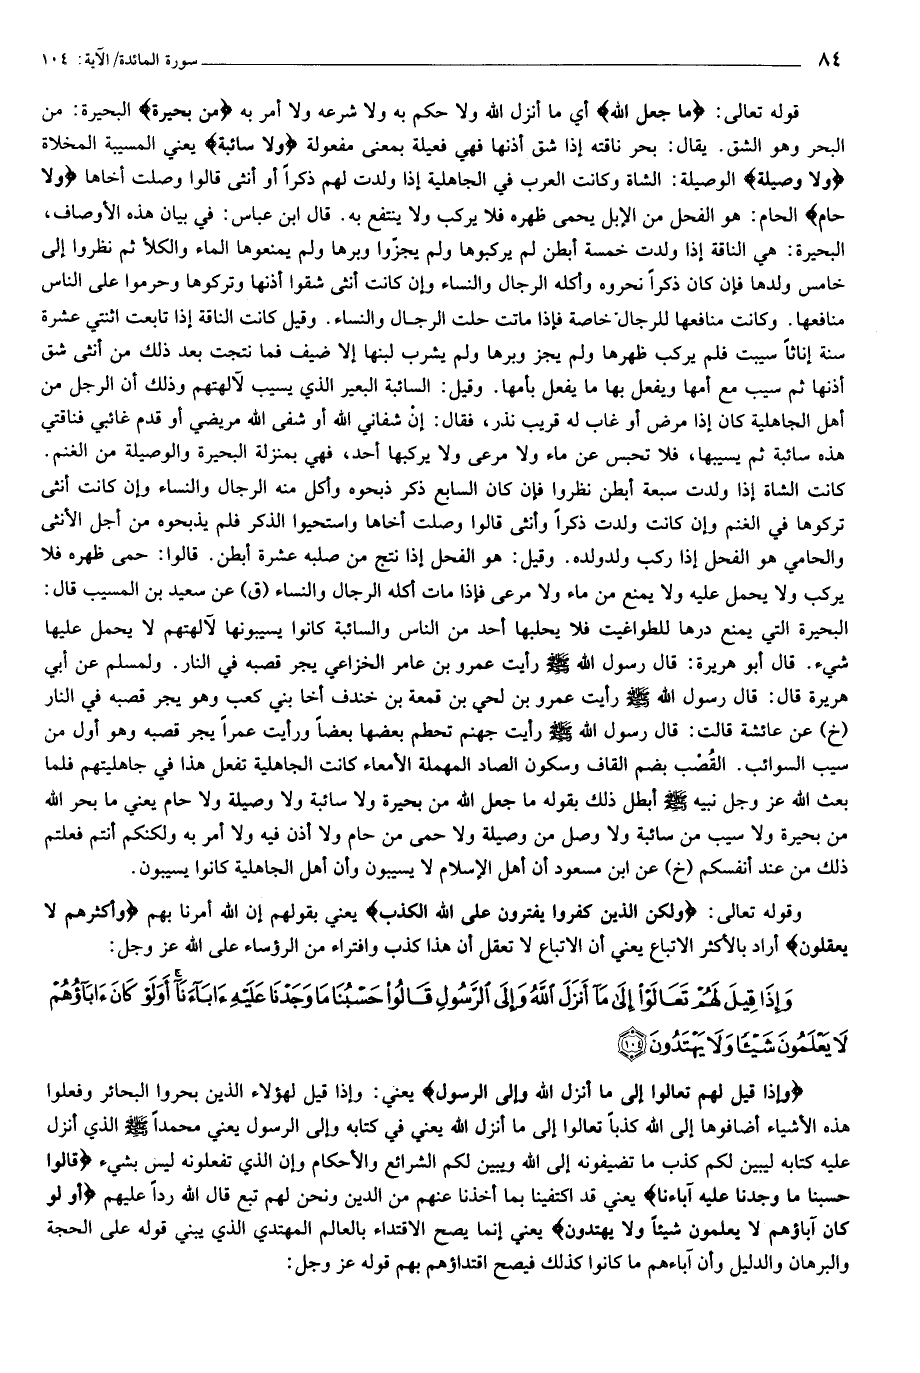 ٨٤ سورة المائدة/ الآية: ١٠٤
قوله تعالى: ﴿ما جعل الله﴾ أي ما أنزل الله ولا حكم به ولا شرعه ولا أمر به ﴿من بحيرة﴾ البحيرة: من
البحر وهو الشق. يقال: بحر ناقته إذا شق أذنها فهي فعيلة بمعنى مفعولة ﴿ولا سائبة﴾ يعني المسيبة المخلاة
﴿ولا وصيلة﴾ الوصيلة: الشاة وكانت العرب في الجاهلية إذا ولدت لهم ذكراً أو أنثى قالوا وصلت أخاها ﴿ولا
حام﴾ الحام: هو الفحل من الإبل يحمى ظهره فلا يركب ولا ينتفع به. قال ابن عباس: في بيان هذه الأوصاف،
البحيرة: هي الناقة إذا ولدت خمسة أبطن لم يركبوها ولم يجزّوا وبرها ولم يمنعوها الماء والكلأ ثم نظروا إلى
خامس ولدها فإن كان ذكراً نحروه وأكله الرجال والنساء وإن كانت أنثى شقوا أذنها وتركوها وحرموا على الناس
منافعها. وكانت منافعها للرجال خاصة فإذا ماتت حلت الرجال والنساء. وقيل كانت الناقة إذا تابعت اثنتي عشرة
سنة إناثاً سيبت فلم يركب ظهرها ولم يجز وبرها ولم يشرب لبنها إلا ضيف فما نتجت بعد ذلك من أنثى شق
أذنها ثم سيب مع أمها ويفعل بها ما يفعل بأمها. وقيل: السائبة البعير الذي يسيب لآلهتهم وذلك أن الرجل من
أهل الجاهلية كان إذا مرض أو غاب له قريب نذر، فقال: إنْ شفاني الله أو شفى الله مريضي أو قدم غائبي فناقتي
هذه سائبة ثم يسيبها، فلا تحبس عن ماء ولا مرعى ولا يركبها أحد، فهي بمنزلة البحيرة والوصيلة من الغنم.
كانت الشاة إذا ولدت سبعة أبطن نظروا فإن كان السابع ذكر ذبحوه وأكل منه الرجال والنساء وإن كانت أنثى
تركوها في الغنم وإن كانت ولدت ذكراً وأنثى قالوا وصلت أخاها واستحيوا الذكر فلم يذبحوه من أجل الأنثى
والحامي هو الفحل إذا ركب ولدولده. وقيل: هو الفحل إذا نتج من صلبه عشرة أبطن. قالوا: حمى ظهره فلا
يركب ولا يحمل عليه ولا يمنع من ماء ولا مرعى فإذا مات أكله الرجال والنساء (ق) عن سعيد بن المسيب قال:
البحيرة التي يمنع درها للطواغيت فلا يحلبها أحد من الناس والسائبة كانوا يسيبونها لآلهتهم لا يحمل عليها
شيء. قال أبو هريرة: قال رسول الله ﷺ رأيت عمرو بن عامر الخزاعي يجر قصبه في النار. ولمسلم عن أبي
هريرة قال: قال رسول الله ﷺ رأيت عمرو بن لحي بن قمعة بن خندف أخا بني كعب وهو يجر قصبه في النار
(خ) عن عائشة قالت: قال رسول الله ﷺ رأيت جهنم تحطم بعضها بعضاً ورأيت عمراً يجر قصبه وهو أول من
سيب السوائب. القُصْب بضم القاف وسكون الصاد المهملة الأمعاء كانت الجاهلية تفعل هذا في جاهليتهم فلما
بعث الله عز وجل نبيه ﷺ أبطل ذلك بقوله ما جعل الله من بحيرة ولا سائبة ولا وصيلة ولا حام يعني ما بحر الله
من بحيرة ولا سيب من سائبة ولا وصل من وصيلة ولا حمى من حام ولا أذن فيه ولا أمر به ولكنكم أنتم فعلتم
ذلك من عند أنفسكم (خ) عن ابن مسعود أن أهل الإسلام لا يسيبون وأن أهل الجاهلية كانوا يسيبون.
وقوله تعالى: ﴿ولكن الذين كفروا يفترون على الله الكذب﴾ يعني بقولهم إن الله أمرنا بهم ﴿وأكثرهم لا
يعقلون﴾ أراد بالأكثر الاتباع يعني أن الاتباع لا تعقل أن هذا كذب وافتراء من الرؤساء على الله عز وجل:
وَإِذَا قِيلَ لَهُمْ تَعَالَوْا إِلَىٰ مَآ أَنزَلَ ٱللَّهُ وَإِلَى ٱلرَّسُولِ قَالُوا۟ حَسْبُنَا مَا وَجَدْنَا عَلَيْهِ ءَابَآءَنَآ أَوَلَوْ كَانَ ءَابَآؤُهُمْ
لَا يَعْلَمُونَ شَيْـًٔا وَلَا يَهْتَدُونَ ١٠٤
﴿وإذا قيل لهم تعالوا إلى ما أنزل الله وإلى الرسول﴾ يعني: وإذا قيل لهؤلاء الذين بحروا البحائر وفعلوا
هذه الأشياء أضافوها إلى الله كذباً تعالوا إلى ما أنزل الله يعني في كتابه وإلى الرسول يعني محمداً ﷺ الذي أنزل
عليه كتابه ليبين لكم كذب ما تضيفونه إلى الله ويبين لكم الشرائع والأحكام وإن الذي تفعلونه ليس بشيء ﴿قالوا
حسبنا ما وجدنا عليه آباءنا﴾ يعني قد اكتفينا بما أخذنا عنهم من الدين ونحن لهم تبع قال الله رداً عليهم ﴿أو لو
كان آباؤهم لا يعلمون شيئاً ولا يهتدون﴾ يعني إنما يصح الاقتداء بالعالم المهتدي الذي يبني قوله على الحجة
والبرهان والدليل وأن آباءهم ما كانوا كذلك فيصح اقتداؤهم بهم قوله عز وجل: